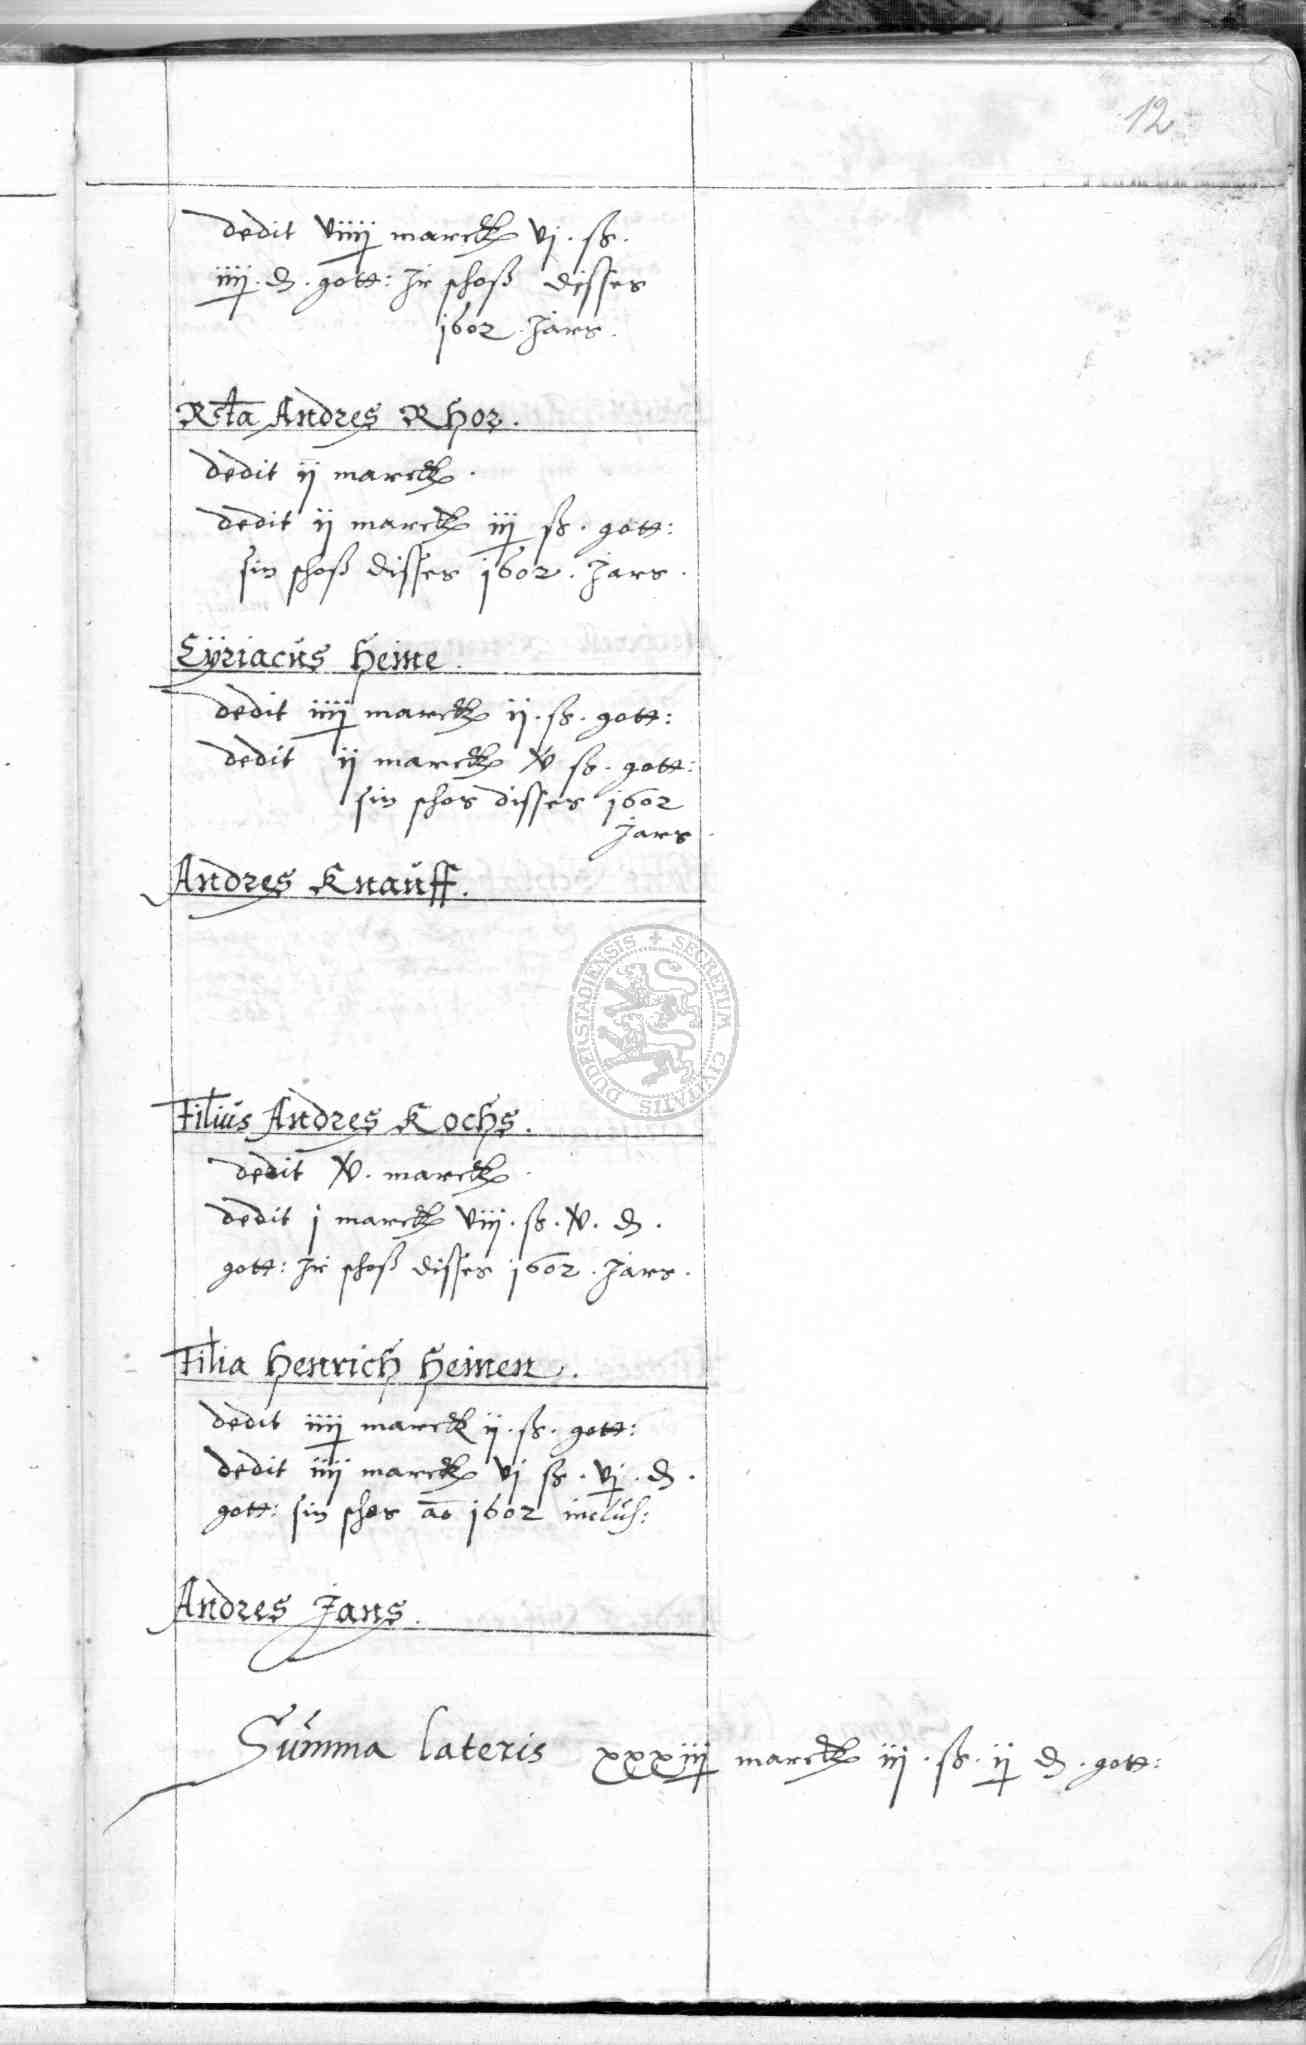 12
dedit viiij marck vj . ß .
iiij . d . gott: Jr schoß disses
1602 . Jars .
Rcta Andres Rhor .
dedit ij marck .
dedit ij marck iij ß . gott:
sin schoß disses 1602 . Jars .
Cÿriacus Heine .
dedit iiij marck ij . ß . gott:
dedit ij marck x ß . gott:
sin schos disses 1602
Jars .
Andres Knauff .
DUDERSTADIENSIS + SECRETUM CIVITATIS
Filius Andres Kochs .
dedit x . marck
dedit j marck viij . ß . x . d .
gott: Jr schoß disses 1602 . Jars .
Filia Henrich Heinen .
dedit iiij marck ij . ß . gott:
dedit iiij marck vj ß . vj . d .
gott: sin schos ao 1602 inclus:
Andres Jans .
Summa lateris xxxiij marck iij . ß . ij d . gott: